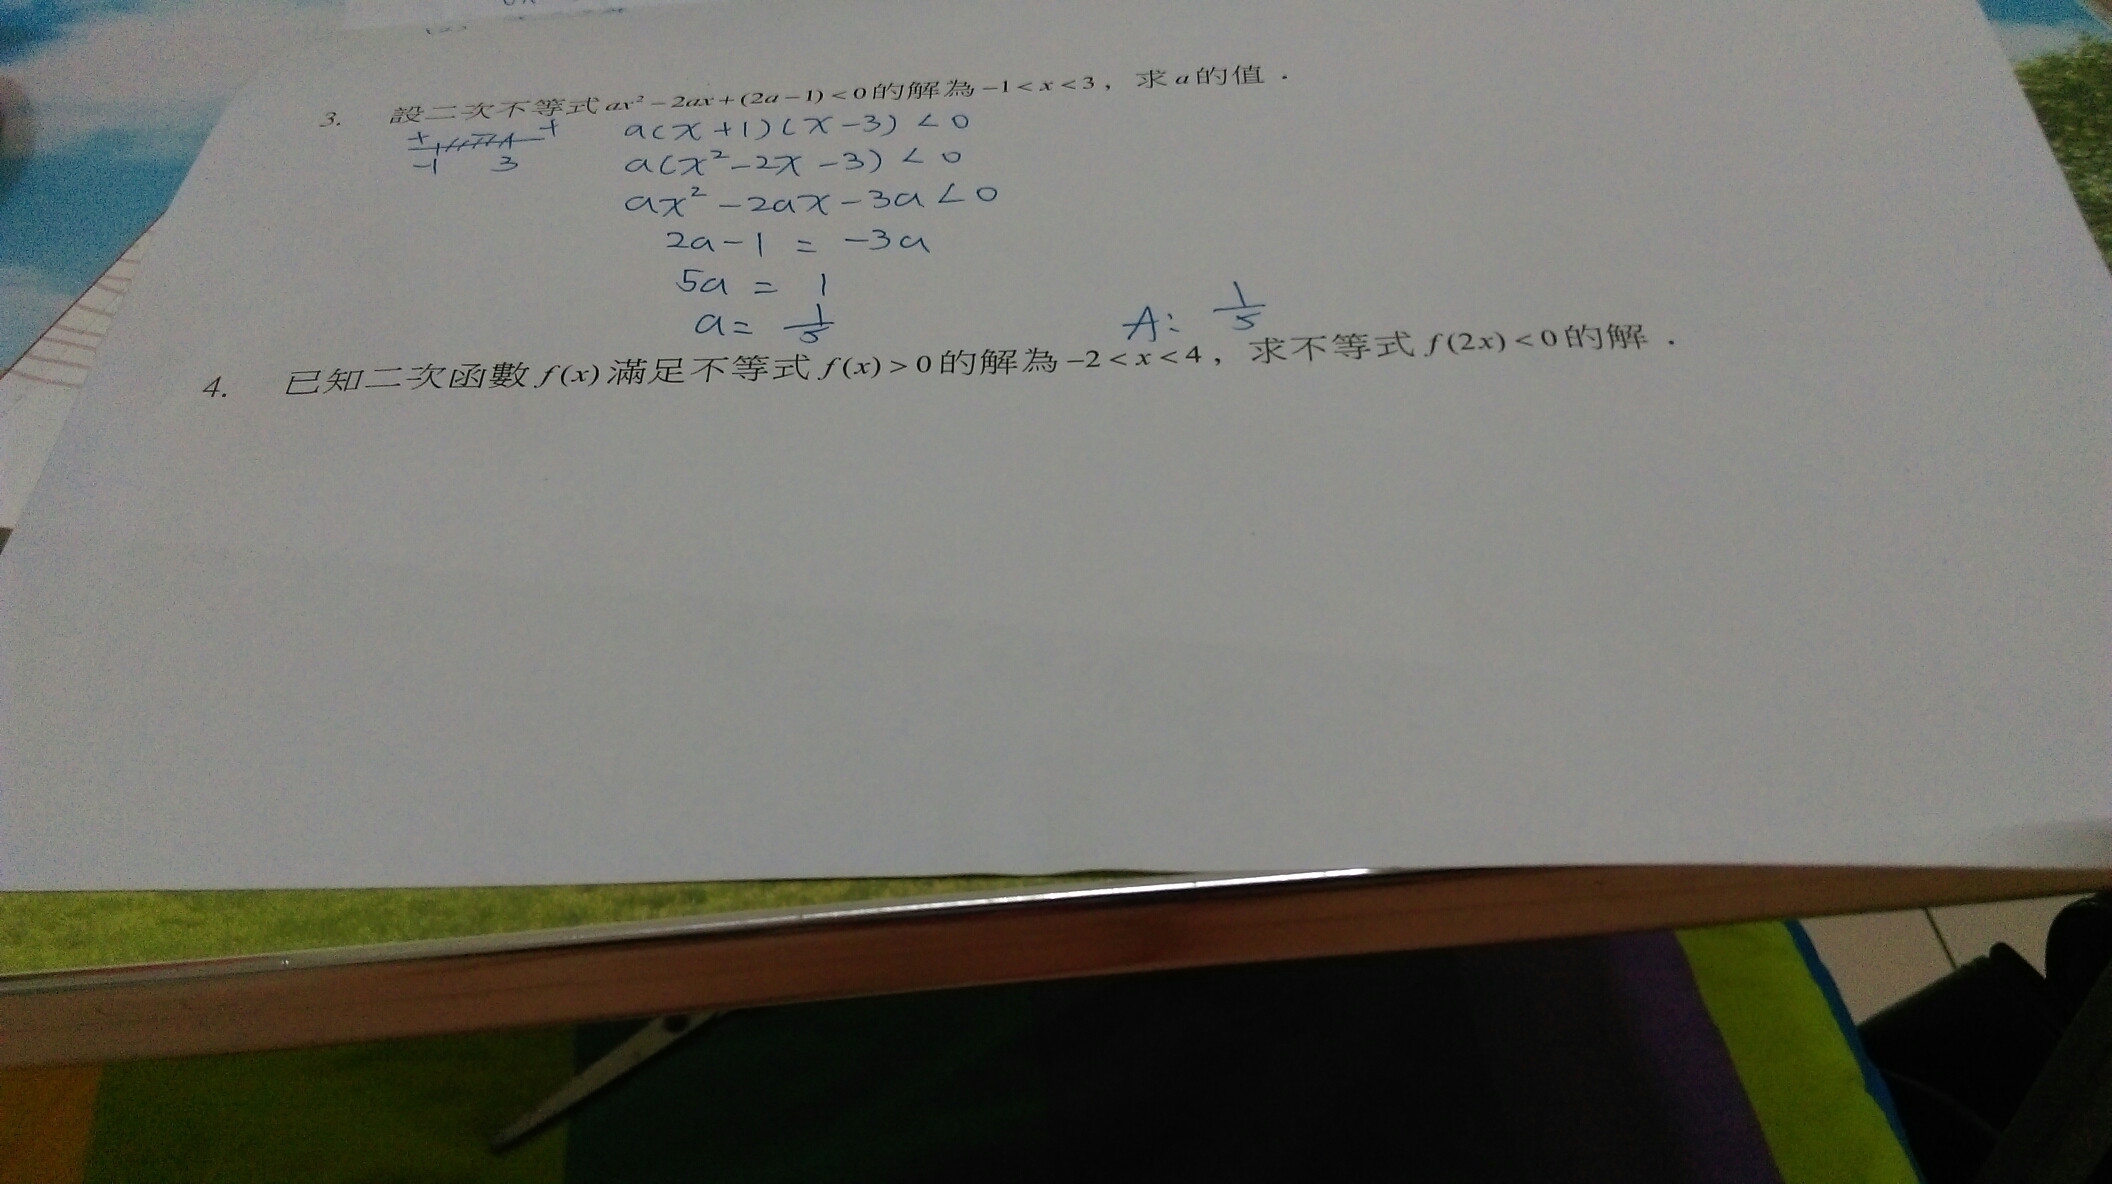 3. 設二次不等式 ax² − 2ax + (2a − 1) < 0 的解為 −1 < x < 3，求 a 的值．
+ − +
-1 3
a(x+1)(x-3) < 0
a(x²-2x-3) < 0
ax²-2ax-3a < 0
2a-1 = -3a
5a = 1
a = 1/5
A: 1/5
4. 已知二次函數 f(x) 滿足不等式 f(x) > 0 的解為 −2 < x < 4，求不等式 f(2x) < 0 的解．